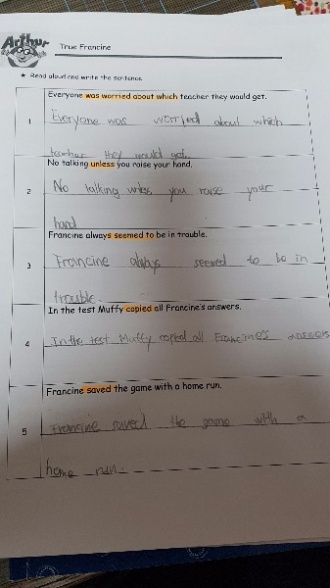 Arthur
True Francine
★ Read aloud and write the sentence.
Everyone was worried about which teacher they would get.
1
Everyone was worried about which
teacher they would get.
No talking unless you raise your hand.
2
No talking unless you raise your
hand
Francine always seemed to be in trouble.
3
Francine always seemed to be in
trouble.
In the test Muffy copied all Francine's answers.
4
In the test Muffy copied all Francine's answers
Francine saved the game with a home run.
5
Francine saved the game with a
home run.